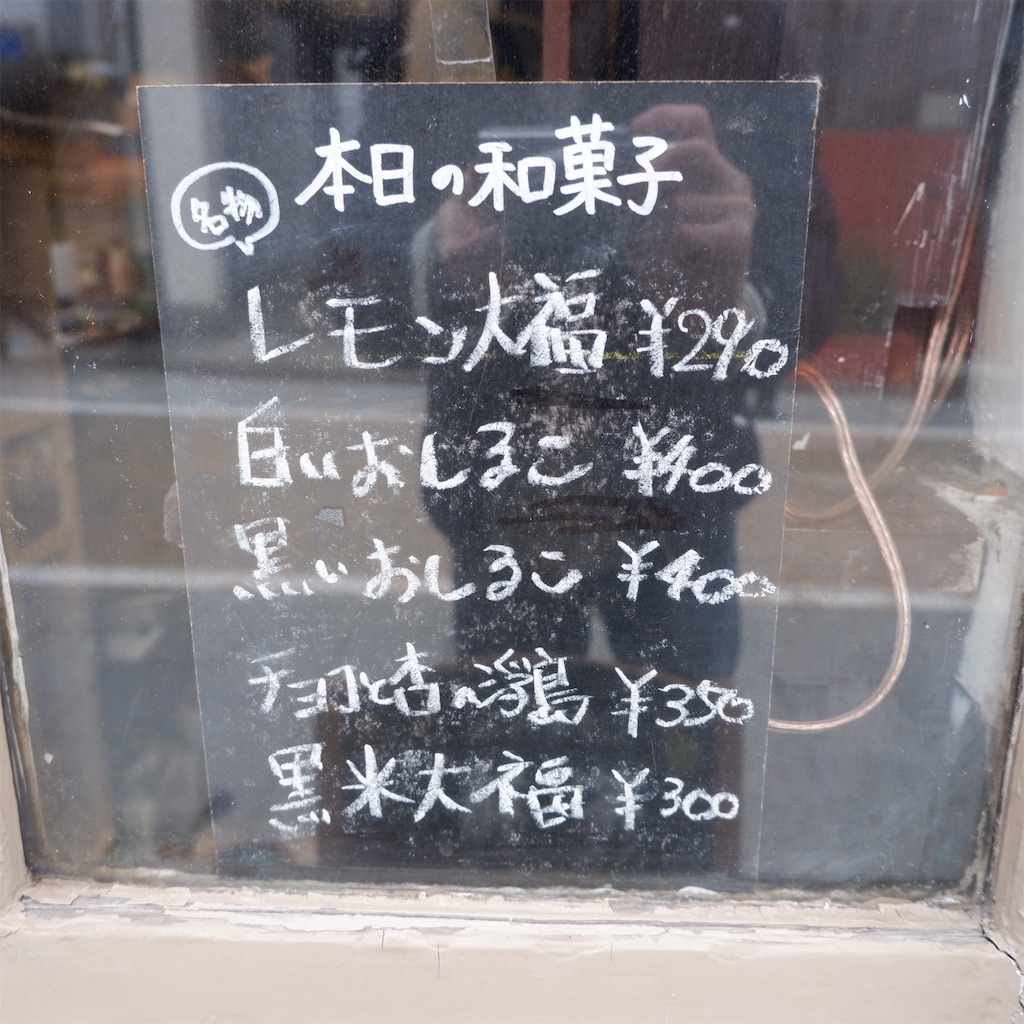 本日の和菓子
名物
レモン大福 ¥290
白いおしるこ ¥400
黒いおしるこ ¥400
チョコと杏の浮島 ¥350
黒米大福 ¥300